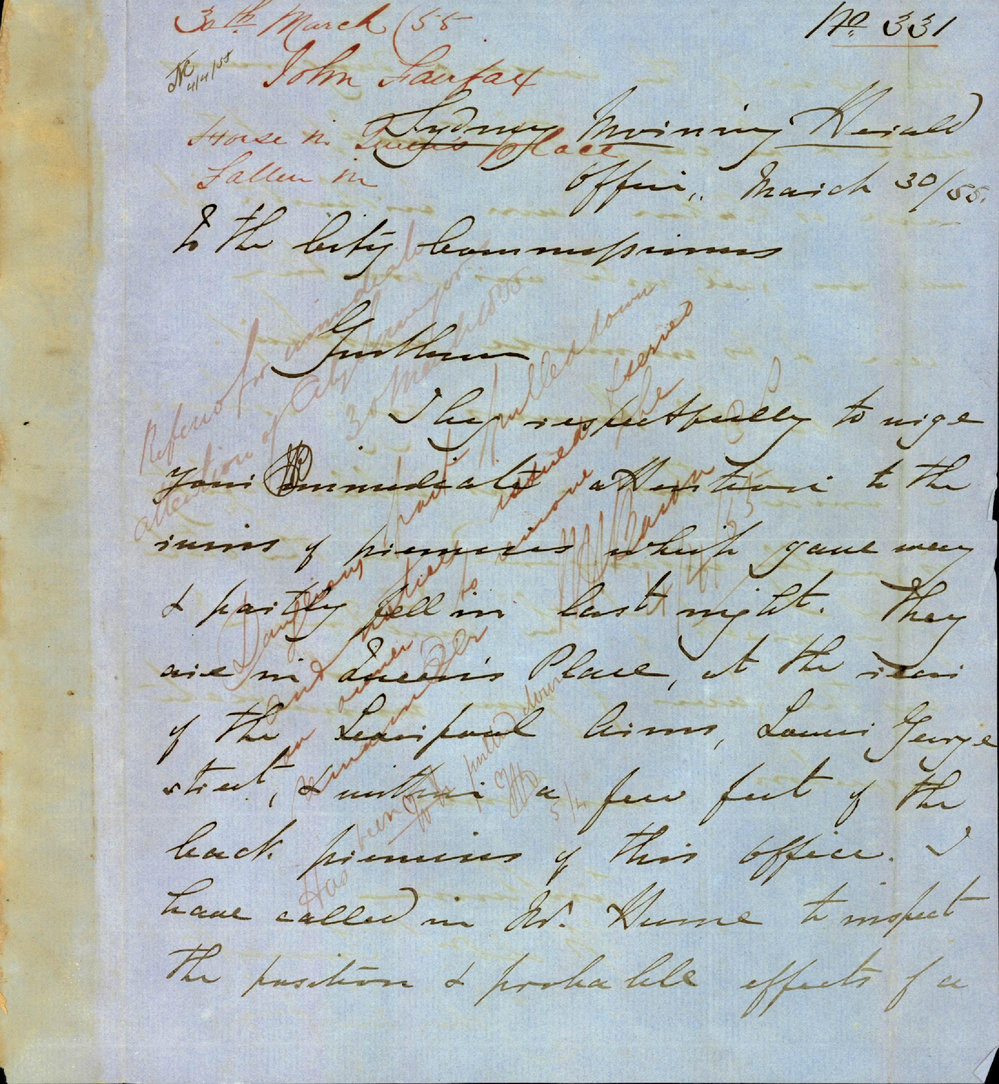 30th March /55.
No 331
4/4/55
John Fairfax
House in Queens Place
Fallen in
Sydney Morning Herald
Office,, March 30/55.
To the City Commissioners
Gentlemen
I beg respectfully to urge
your immediate attention to the
ruins of premises which gave way
& partly fell in last night. They
are in Queen's Place, at the rear
of the Liverpool Arms, Lower George
street, & within a few feet of the
back premises of this office. I
have called in Mr. Hume to inspect
the position & probable effects of a
Referred for immediate
attention of City Surveyor
30 March 1855
Dangerous part pulled down
and notice issued & served
on owner to remove the
remainder
4/4/55
Has been pulled down
5/4